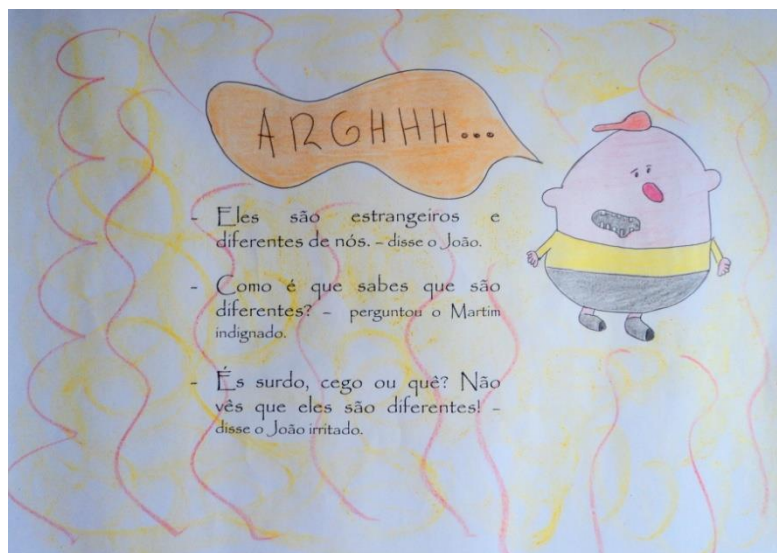 ARGHHH...
- Eles são estrangeiros e
diferentes de nós. – disse o João.
- Como é que sabes que são
diferentes? – perguntou o Martim
indignado.
- És surdo, cego ou quê? Não
vês que eles são diferentes! –
disse o João irritado.